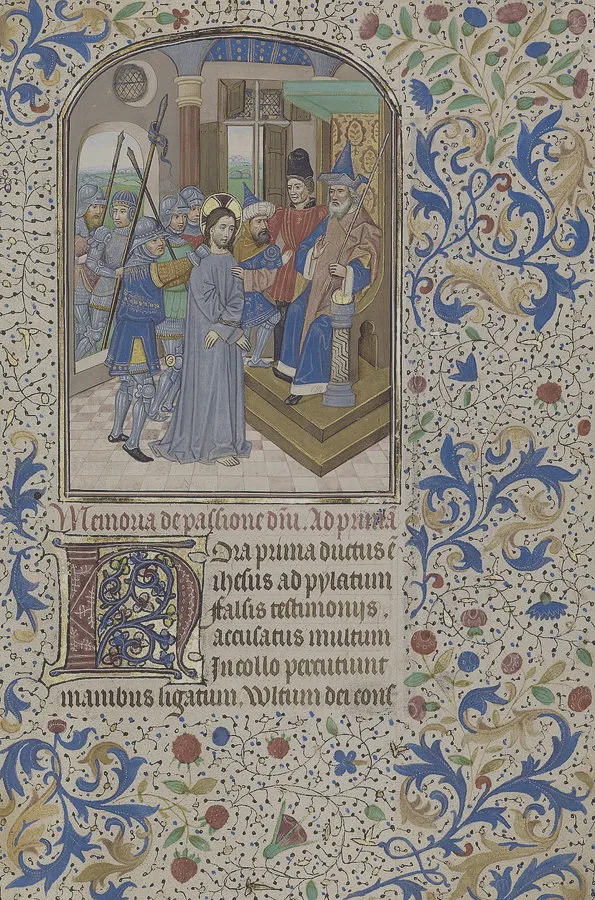 Memoria de passione dñi. Ad prima
Hora prima ductus e
ihesus ad pylatum
falsis testimonijs.
accusatus multum
In collo percutiunt
manibus ligatum. Wltum dei cons